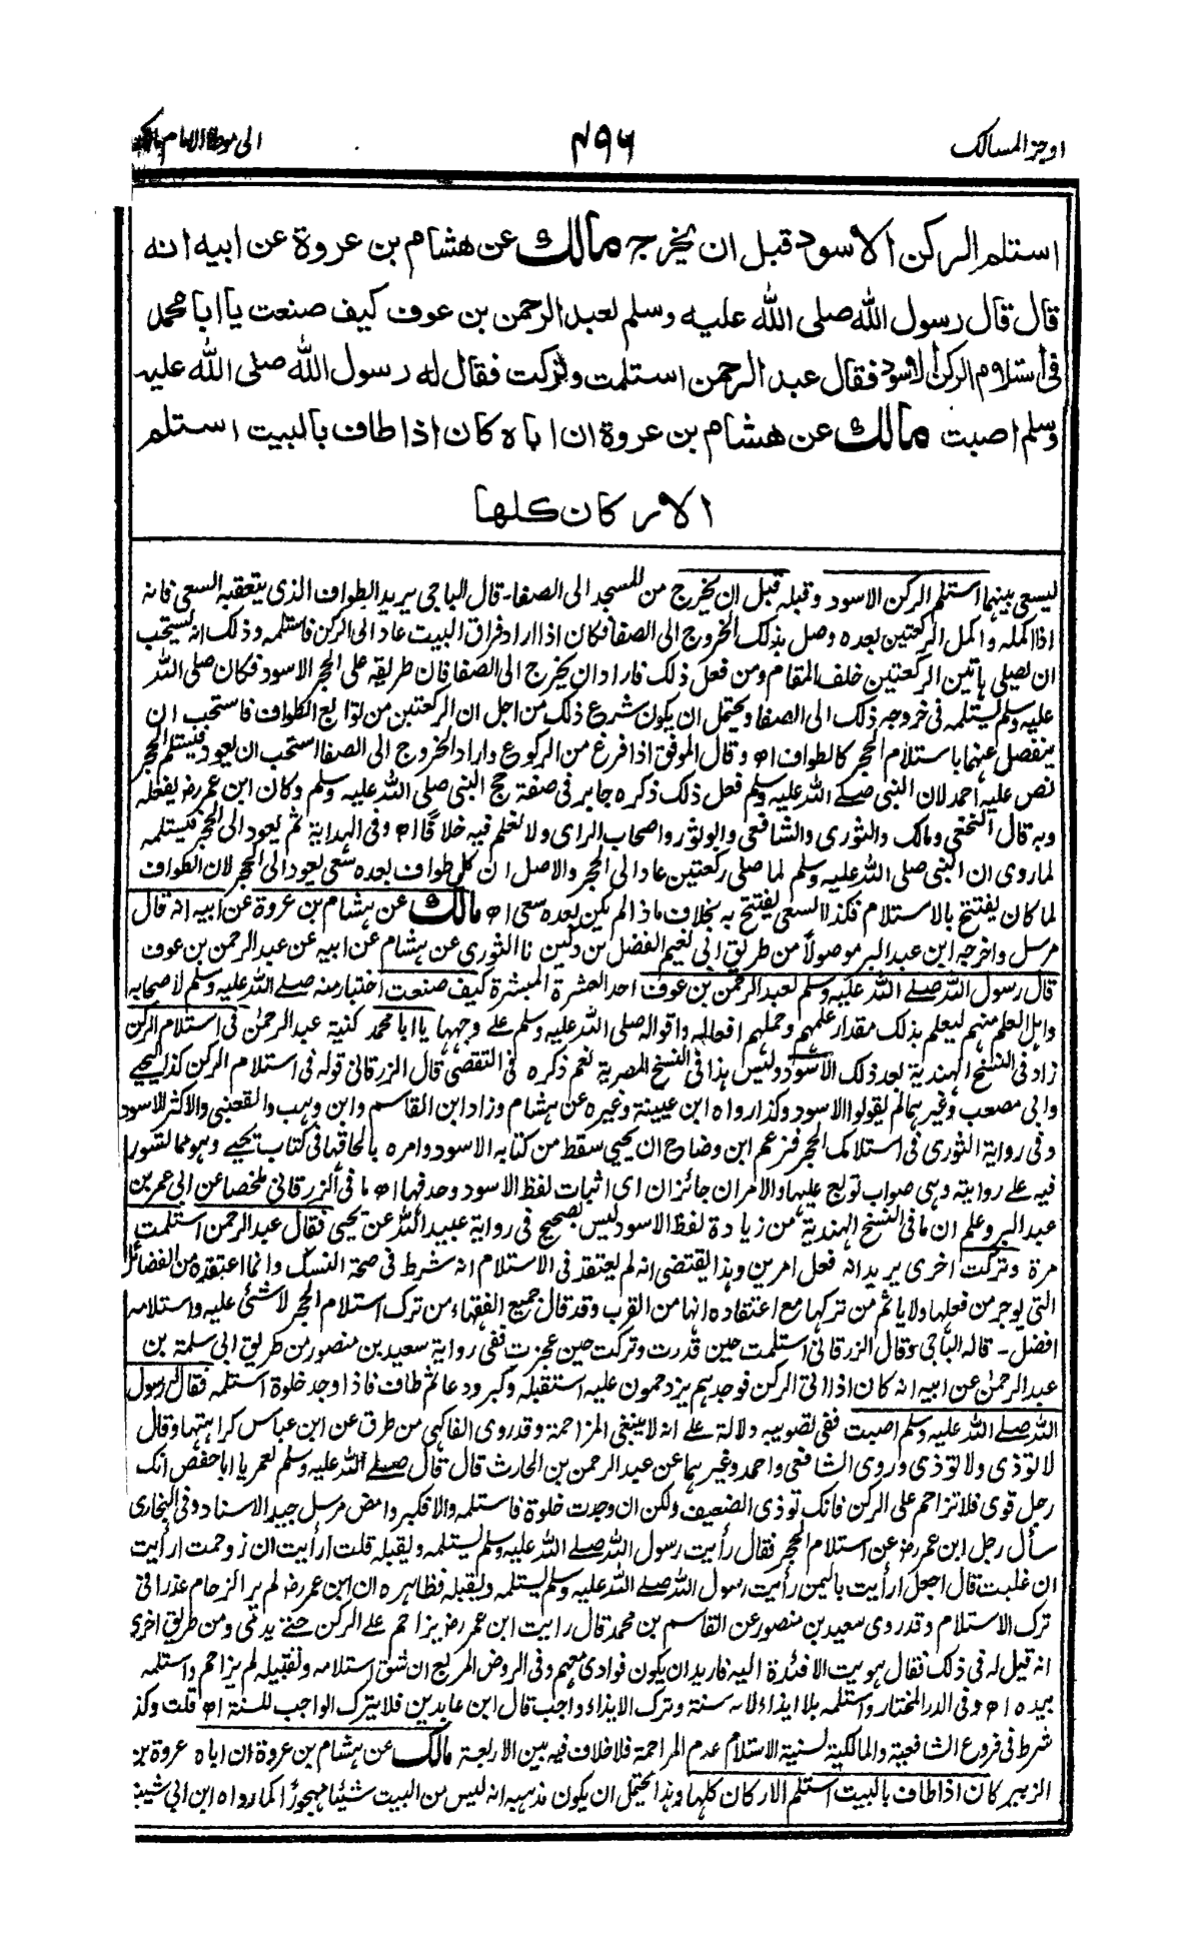 اوجز المسالك ٤٩٦ الى موطا الامام مالك
استلم الركن الاسود قبل ان يخرج مالك عن هشام بن عروة عن ابيه انه
قال قال رسول الله صلى الله عليه وسلم لعبد الرحمن بن عوف كيف صنعت يا ابا محمد
فى استلام الركن الاسود فقال عبد الرحمن استلمت وتركت فقال له رسول الله صلى الله عليه
وسلم اصبت مالك عن هشام بن عروة ان اباه كان اذا طاف بالبيت استلم
الاركان كلها
ليسعى بينهما استلم الركن الاسود وقبله قبل ان يخرج من المسجد الى الصفا۔ قال الباجى يريد الطواف الذى يتعقبه السعى فانه
اذا اكمله واكمل الركعتين بعده وصل بذلك الخروج الى الصفا فكان اذا اراد فراق البيت عاد الى الركن فاستلمه وذلك انه يستحب
ان يصلى هاتين الركعتين خلف المقام ومن فعل ذلك فاراد ان يخرج الى الصفا فان طريقه على الحجر الاسود فكان صلى الله
عليه وسلم يستلمه فى خروجه ذلك الى الصفا ويحتمل ان يكون شرع ذلك من اجل ان الركعتين من توابع الطواف فاستحب ان
ينفصل عنهما باستلام الحجر كالطواف اه وقال الموفق اذا فرغ من الركوع واراد الخروج الى الصفا استحب ان يعود فيستلم الحجر
نص عليه احمد لان النبى صلے الله عليه وسلم فعل ذلك ذكره جابر فى صفة حج النبى صلى الله عليه وسلم وكان ابن عمر رضـ يفعله
وبه قال النخعى ومالك والثورى والشافعى وابو ثور واصحاب الراى ولا نعلم فيه خلافا اه وفى الهداية ثم يعود الى الحجر فيستلمه
لما روى ان النبى صلى الله عليه وسلم لما صلى ركعتين عاد الى الحجر والاصل ان كل طواف بعده سعى يعود الى الحجر لان الطواف
لما كان يفتتح بالاستلام فكذا السعى يفتتح به بخلاف ما ذا لم يكن بعده سعى اه مالك عن هشام بن عروة عن ابيه انه قال
مرسل واخرجه ابن عبد البر موصولاً من طريق ابى نعيم الفضل بن دكين نا الثورى عن هشام عن ابيه عن عبد الرحمن بن عوف
قال رسول الله صلے الله عليه وسلم لعبد الرحمن بن عوف احد العشرة المبشرة كيف صنعت اختبار منه صلے الله عليه وسلم لاصحابه
واہل العلم منهم ليعلم بذلك مقدار علمهم وحملهم افعاله واقواله صلى الله عليه وسلم على وجهها يا ابا محمد كنية عبد الرحمن فى استلام الركن
زاد فى النسخ الهندية بعد ذلك الاسود وليس هذا فى النسخ المصرية نعم ذكره فى التقصى قال الزرقانى قوله فى استلام الركن كذا ليحيے
وابى مصعب وغيرهما لم يقولوا الاسود وكذا رواه ابن عيينة وغيره عن هشام وزاد ابن القاسم وابن وهب والقعنبى والاكثر الاسود
وفى رواية الثورى فى استلامك الحجر فزعم ابن وضاح ان يحيى سقط من كتابه الاسود وامره بالحاقها فى كتاب يحيے وهو مما تسور
فيه على روايته وهى صواب توبع عليها والامران جائزان اى اثبات لفظ الاسود وحذفها اه ما فى الزرقانى ملخصا عن ابى عمر بن
عبد البر وعلم ان ما فى النسخ الهندية من زيادة لفظ الاسود ليس بصحيح فى رواية عبيد الله عن يحيى فقال عبد الرحمن استلمت
مرة وتركت اخرى يريد انه فعل امرين وهذا يقتضى انه لم يعتقد فى الاستلام انه شرط فى صحة النسك وانما اعتقده من الفضائل
التى يوجر من فعلها ولا ياثم من تركها مع اعتقاده انها من القرب وقد قال جميع الفقهاء من ترك استلام الحجر لا شئ عليه واستلامه
افضل۔ قاله الباجى وقال الزرقانى استلمت حين قدرت وتركت حين عجزت ففى رواية سعيد بن منصور من طريق ابى سلمة بن
عبد الرحمن عن ابيه انه كان اذا اتى الركن فوجدهم يزدحمون عليه استقبله وكبر ودعا ثم طاف فاذا وجد خلوة استلمه فقال له رسول
الله صلے الله عليه وسلم اصبت ففى تصويبه دلالة على انه لا ينبغى المزاحمة وقد روى الفاكهى من طرق عن ابن عباس كراهتها وقال
لا تؤذى ولا تؤذى وروى الشافعى واحمد وغيرهما عن عبد الرحمن بن الحارث قال قال صلے الله عليه وسلم لعمر يا ابا حفص انك
رجل قوى فلا تزاحم على الركن فانك توذى الضعيف ولكن ان وجدت خلوة فاستلمه والا فكبر وامض مرسل جيد الاسناد وفى البخارى
سأل رجل ابن عمر رضـ عن استلام الحجر فقال رأيت رسول الله صلے الله عليه وسلم يستلمه ويقبله قلت ارأيت ان زوحمت ارأيت
ان غلبت قال اجعل ارأيت باليمن رأيت رسول الله صلے الله عليه وسلم يستلمه ويقبله فظاهره ان ابن عمر رضـ لم ير الزحام عذرا فى
ترك الاستلام وقد روى سعيد بن منصور عن القاسم بن محمد قال رايت ابن عمر رضـ يزاحم على الركن حتے يدمى ومن طريق اخرى
انه قيل له فى ذلك فقال هويت الافئدة اليه فاريد ان يكون فوادى معهم وفى الروض المربع ان شق استلامه وتقبيله لم يزاحم واستلمه
بيده اه وفى الدر المختار واستلمه بلا ايذاء لانه سنة وترك الايذاء واجب قال ابن عابدين فلا يترك الواجب للسنة اه قلت وكذ
شرط فى فروع الشافعية والمالكية لسنية الاستلام عدم المزاحمة فلا خلاف فيه بين الاربعة مالك عن هشام بن عروة ان اباه عروة بن
الزبير كان اذا طاف بالبيت استلم الاركان كلها وهذا يحتمل ان يكون مذهبه انه ليس من البيت شيئا مهجورًا كما رواه ابن ابى شيبة